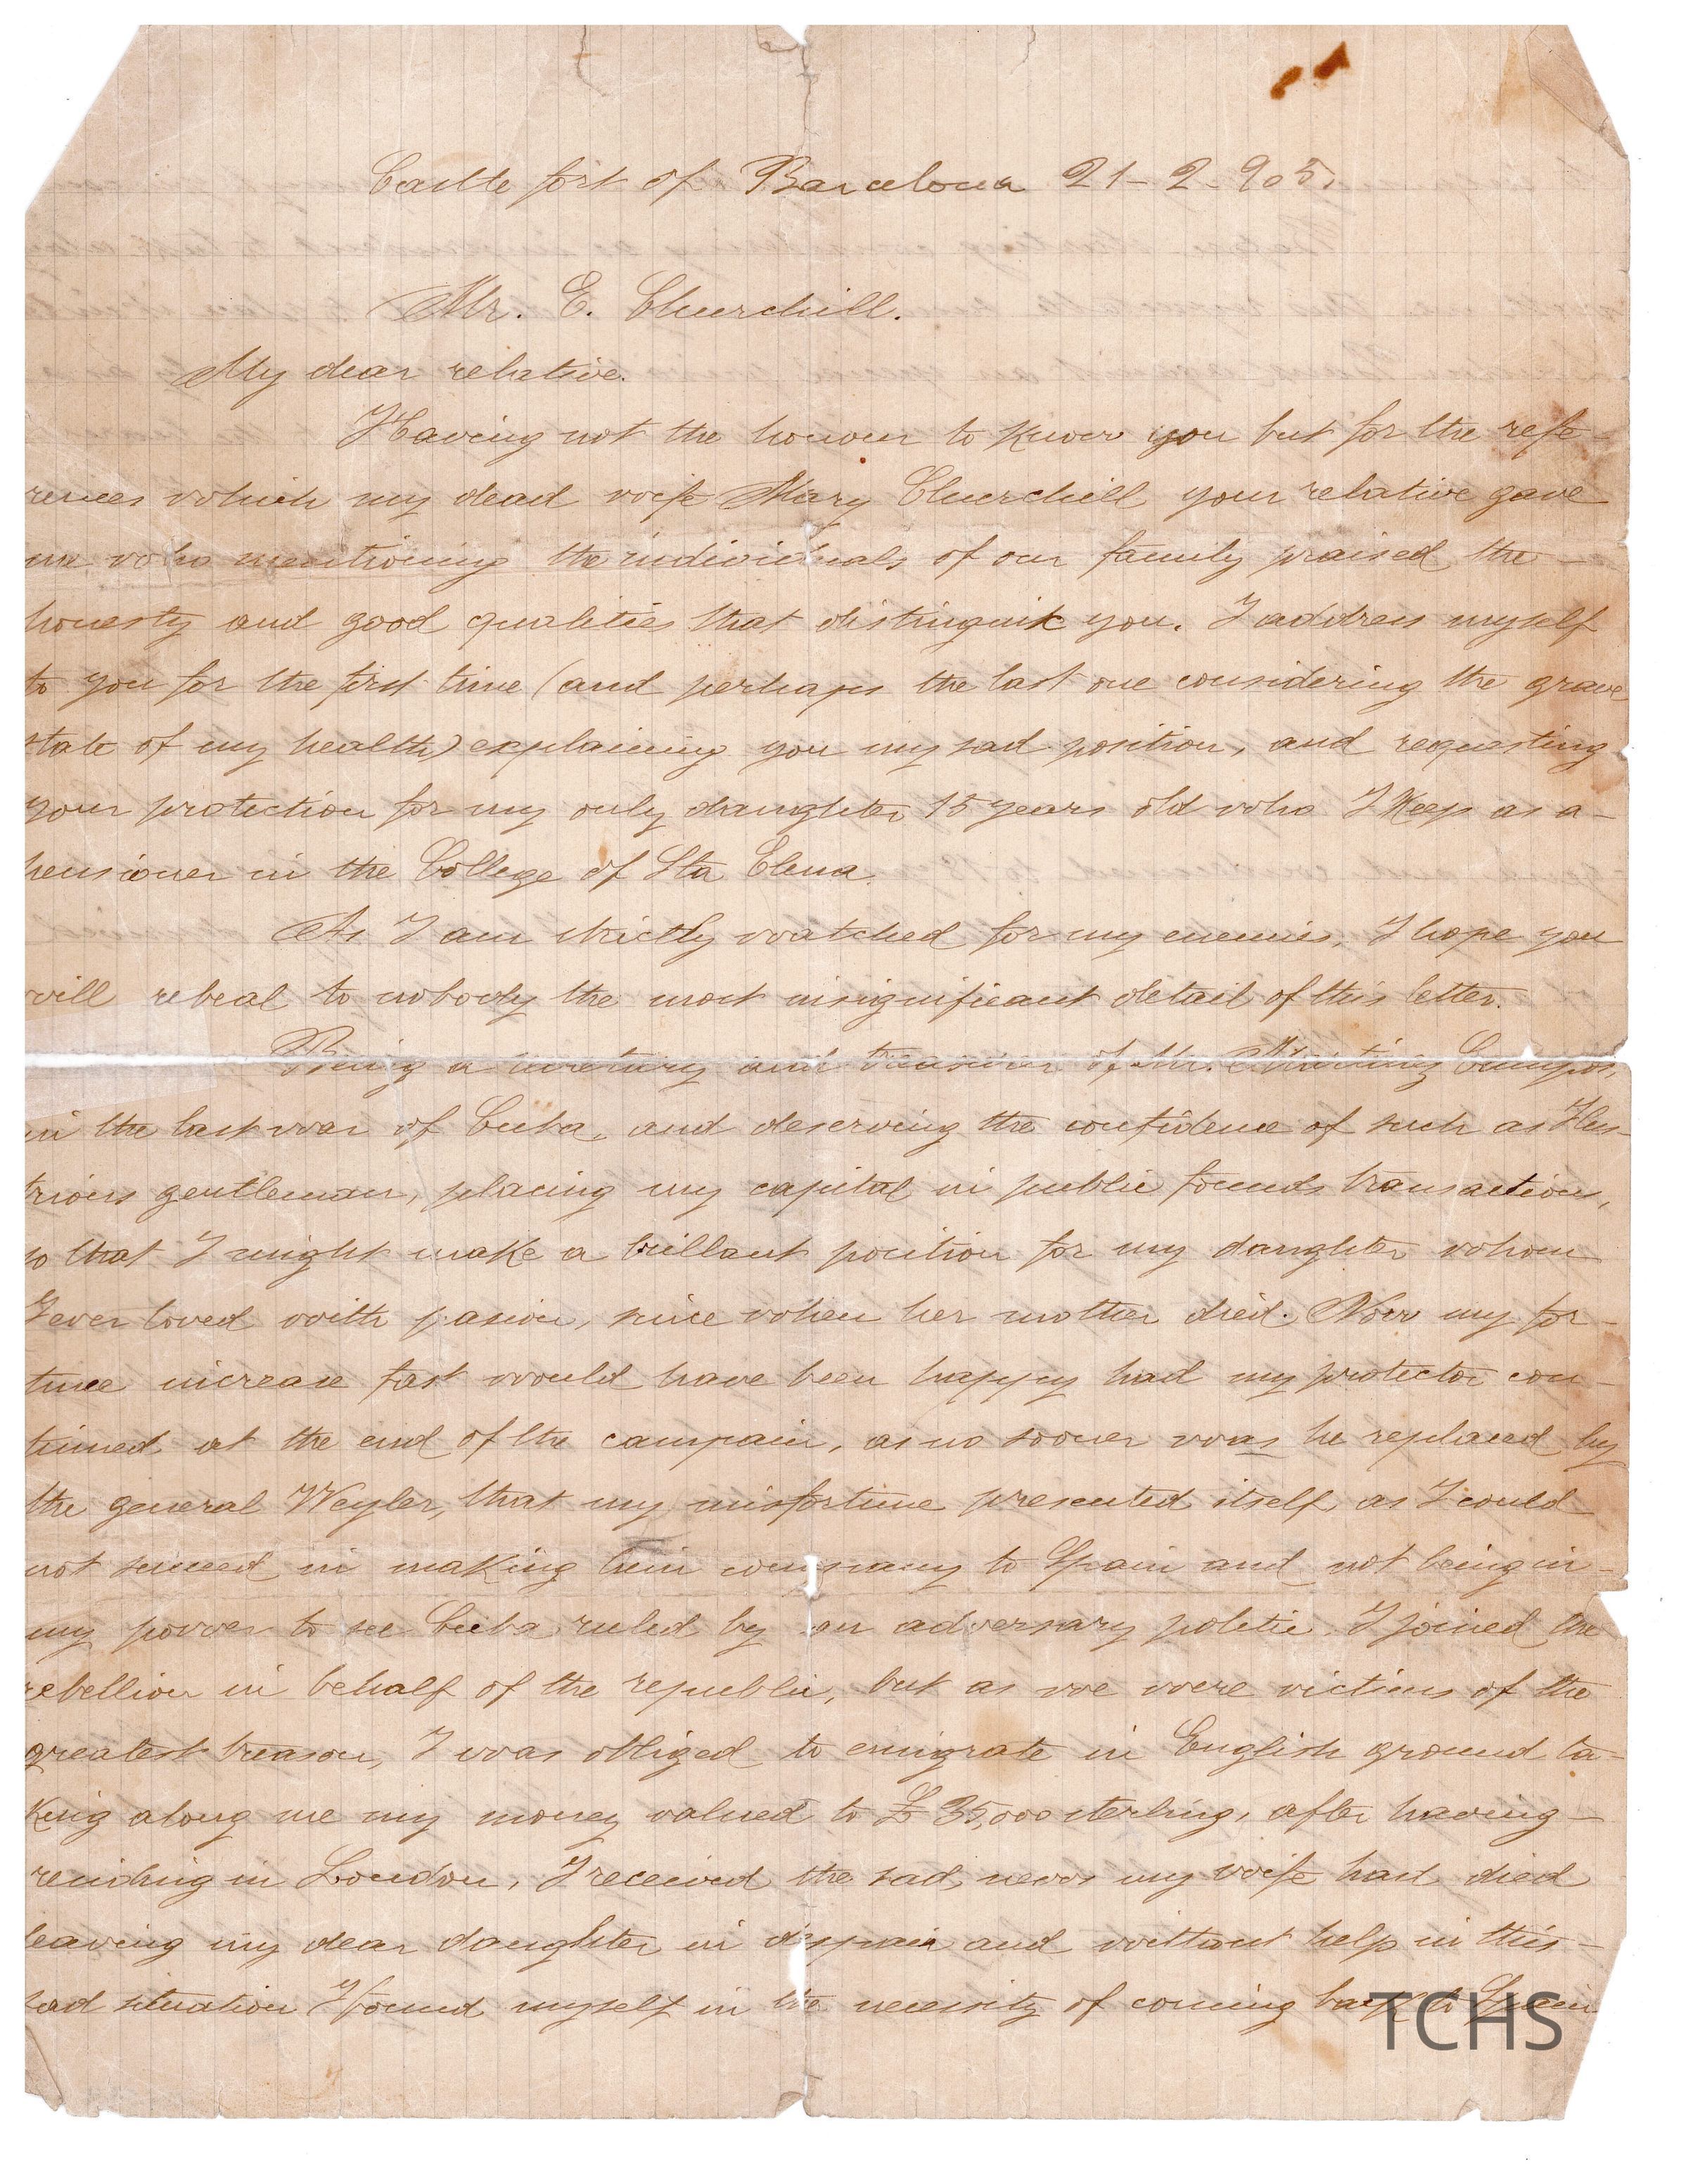 Castle fort of Barcelona 21-2-905.
Mr. E. Churchill.
My dear relative.
Having not the honour to know you but for the refe-
rences which my dead wife Mary Churchill your relative gave
me who mentioning the individuals of our family praised the -
honesty and good qualities that distinguish you. I address myself
to you for the first time (and perhaps the last one considering the grave
state of my health) explaining you my sad position, and requesting
your protection for my only daughter 15 years old who I Keep as a -
pensioner in the College of Sta Elena.
As I am strictly watched for my enemies, I hope you
will rebeal to nobody the most insignificant detail of this letter.
Being a secretary and treasurer of Mr. Martinez Campos,
in the last war of Cuba, and deserving the confidence of such as Ilus-
trious gentleman, placing my capital in public founds transactions,
so that I might make a brillant position for my daughter whom
I ever loved with pasion, since when her mother died. Now my for-
tune increase fast would have been happy had my protector con-
tinued at the end of the campain, as no sooner was he replaced by
the general Weyler, that my misfortune presented itself as I could
not succeed in making him company to Spain and not being in -
my power to see Cuba ruled by an adversary politic. I joined the
rebellion in behalf of the republic, but as we were victims of the
greatest treason, I was obliged to emigrate in English ground ta-
king along me my money valued to £ 35,000 sterling, after having -
residing in London, I received the sad news my wife had died
leaving my dear daughter in despair and without help in this -
sad situation I found myself in the necessity of coming back to Spain
TCHS